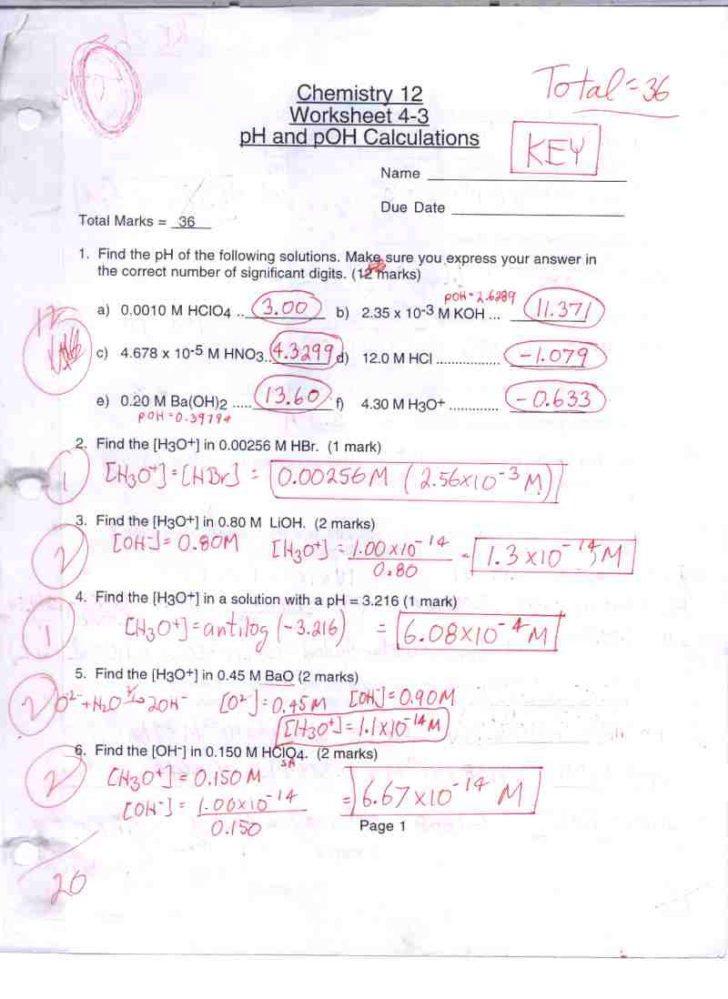 Total=36
Chemistry 12
Worksheet 4-3
pH and pOH Calculations
KEY
Name
Due Date
Total Marks = 36
1. Find the pH of the following solutions. Make sure you express your answer in
the correct number of significant digits. (12 marks)
pOH=2.6289
a) 0.0010 M HClO4 .. 3.00 b) 2.35 x 10-3 M KOH ... 11.371
c) 4.678 x 10-5 M HNO3.. 4.3299 d) 12.0 M HCl ................ -1.079
e) 0.20 M Ba(OH)2 ..... 13.60 f) 4.30 M H3O+ ............ -0.633
pOH=0.39794
2. Find the [H3O+] in 0.00256 M HBr. (1 mark)
1 [H3O+]=[HBr] = 0.00256M (2.56x10-3 M)
3. Find the [H3O+] in 0.80 M LiOH. (2 marks)
2 [OH-]=0.80M [H3O+] = 1.00x10-14 = 1.3x10-14 M
0.80
4. Find the [H3O+] in a solution with a pH = 3.216 (1 mark)
1 [H3O+]=antilog(-3.216) = 6.08x10-4 M
5. Find the [H3O+] in 0.45 M BaO (2 marks)
2 O2-+H2O → 2OH- [O2-]=0.45M [OH-]=0.90M
[H3O+]=1.1x10-14 M
6. Find the [OH-] in 0.150 M HClO4. (2 marks)
SA
2 [H3O+]=0.150M
[OH-] = 1.00x10-14 = 6.67x10-14 M
0.150
Page 1
20